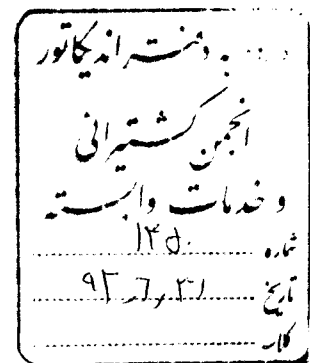 به دفتر اندیکاتور
انجمن کشتیرانی
و خدمات وابسته
شماره ۱۴۵۰
تاریخ ۹۲،۶،۳۱